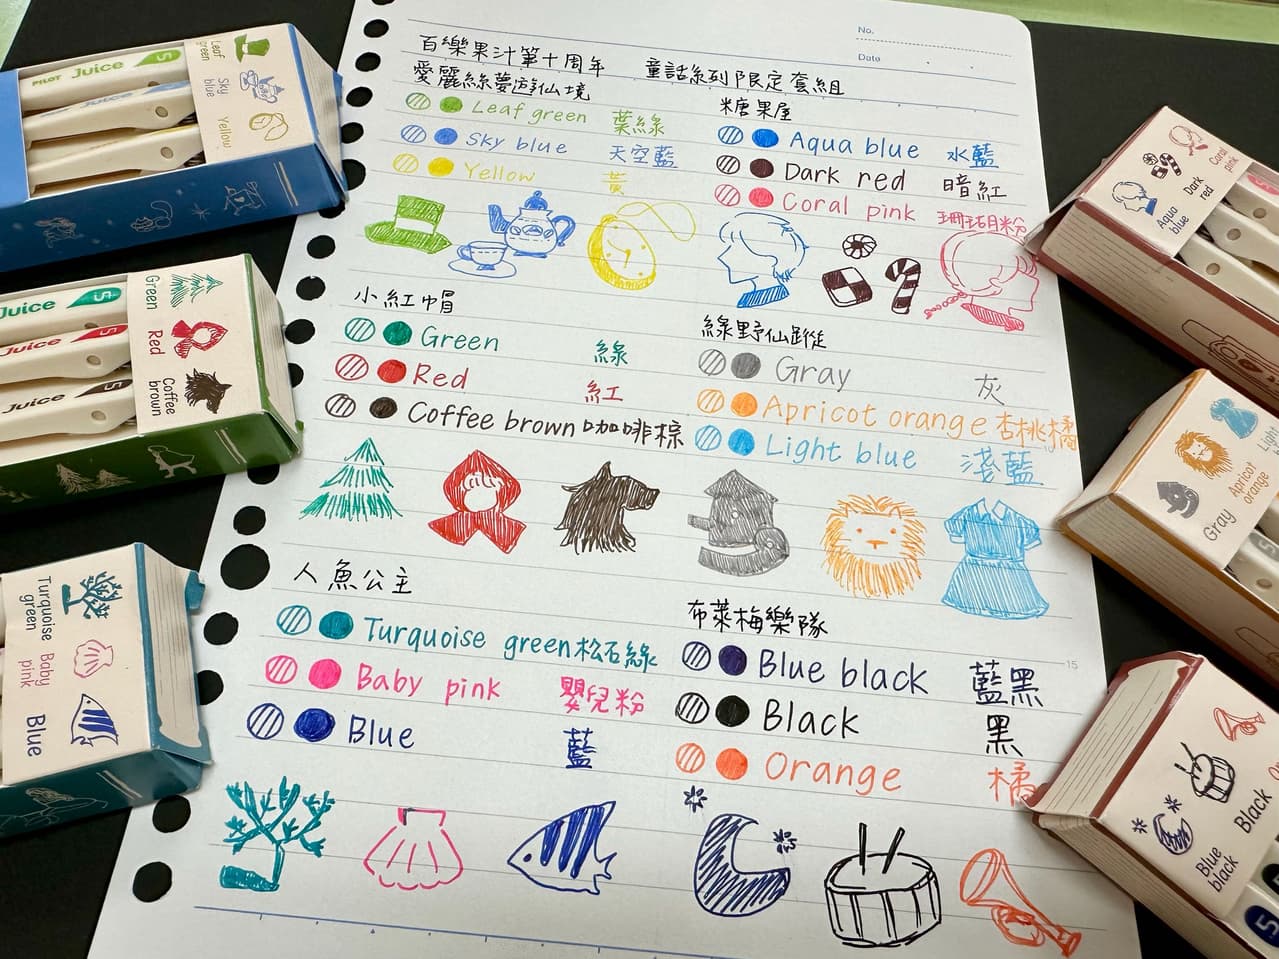 No.
Date
百樂果汁筆十周年 童話系列限定套組
愛麗絲夢遊仙境
Leaf green 葉綠
Sky blue 天空藍
Yellow 黃
糖果屋
Aqua blue 水藍
Dark red 暗紅
Coral pink 珊瑚粉
小紅帽
Green 綠
Red 紅
Coffee brown 咖啡棕
綠野仙蹤
Gray 灰
Apricot orange 杏桃橘
Light blue 淺藍
人魚公主
Turquoise green 松石綠
Baby pink 嬰兒粉
Blue 藍
布萊梅樂隊
Blue black 藍黑
Black 黑
Orange 橘
10
15
PILOT Juice 5
Leaf green
Sky blue
Yellow
Juice 5
Juice 5
Juice 5
Green
Red
Coffee brown
Turquoise green
Baby pink
Blue
Coral pink
Dark red
Aqua blue
Light
Apricot orange
Gray
5
Black
Blue black
5